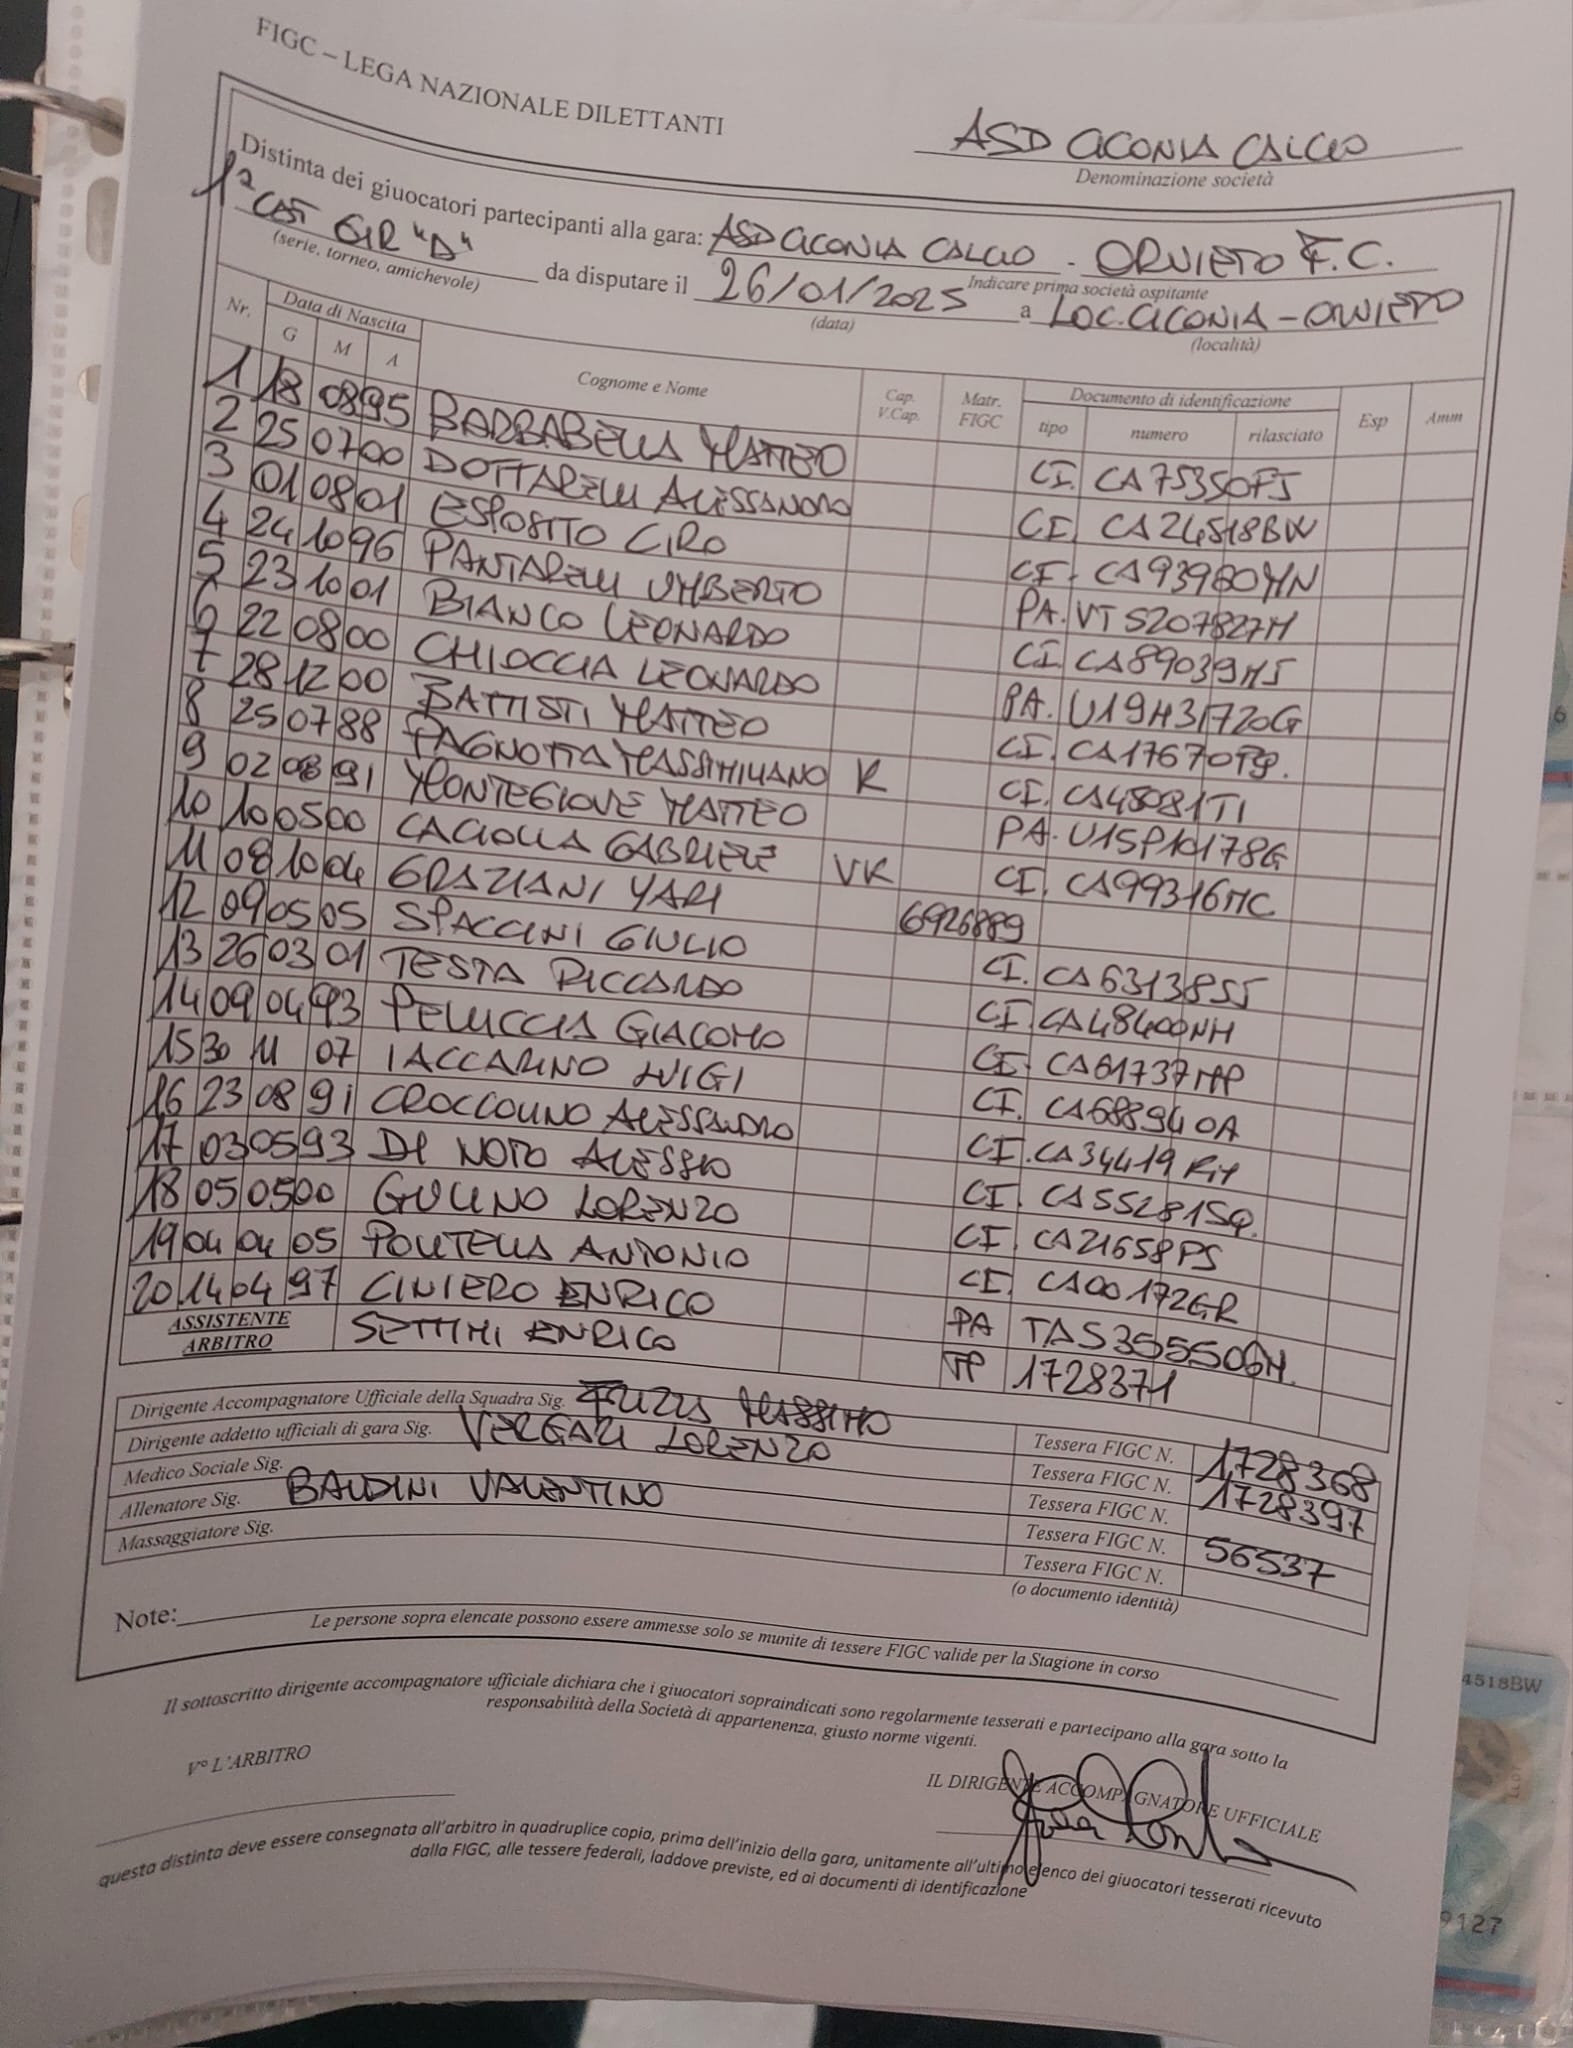 FIGC – LEGA NAZIONALE DILETTANTI
ASD CICONIA CALCIO
Denominazione società
Distinta dei giuocatori partecipanti alla gara: ASD CICONIA CALCIO - ORVIETO F.C.
Indicare prima società ospitante
1ª CAT GIR "D" da disputare il 26/01/2025 a LOC. CICONIA - ORVIETO
(serie, torneo, amichevole) (data) (località)
Nr. Data di Nascita G M A Cognome e Nome Cap. V.Cap. Matr. FIGC Documento di identificazione tipo numero rilasciato Esp Amm
1 18 08 95 BARBABELLA MATTEO CI. CA75350FJ
2 25 07 00 DOTTARELLI ALESSANDRO CI. CA24518BW
3 01 08 01 ESPOSITO CIRO CI. CA93980MN
4 24 10 96 PANTARELLI UMBERTO PA. VT5207827M
5 23 10 01 BIANCO LEONARDO CI. CA89039MJ
6 22 08 00 CHIOCCIA LEONARDO PA. U19H31720G
7 28 12 00 BATTISTI MATTEO CI.
8 25 07 88 PAGNOTTA MASSIMILIANO K CI. CA48081TI
9 02 08 91 MONTEGIOVE MATTEO PA.
10 10 05 00 CACIOLLA GABRIELE VK CI. CA99316MC
11 08 10 04 GRAZIANI YARI 6926889
12 09 05 05 SPACCINI GIULIO CI. CA63138SJ
13 26 03 01 TESTA RICCARDO CI. CA48400NH
14 09 04 93 PELUCCIA GIACOMO CI. CA61737MP
15 30 11 07 IACCARINO LUIGI CI. CA68894OA
16 23 08 91 CROCCOLINO ALESSANDRO CI. CA34419RM
17 03 05 93 DI NOTO ALESSIO CI. CA55281SQ
18 05 05 00 GULINO LORENZO CI. CA21658PS
19 04 04 05 POLITELLA ANTONIO CI. CA00172GR
20 14 04 97 CINIERO ENRICO PA TA5355506M
ASSISTENTE ARBITRO SETTIMI ENRICO TP 1728371
Dirigente Accompagnatore Ufficiale della Squadra Sig. MASSIMO Tessera FIGC N. 1728368
Dirigente addetto ufficiali di gara Sig. VERGARI LORENZO Tessera FIGC N. 1728397
Medico Sociale Sig. Tessera FIGC N.
Allenatore Sig. BALDINI VALENTINO Tessera FIGC N. 56537
Massaggiatore Sig. Tessera FIGC N.
(o documento identità)
Note:
Le persone sopra elencate possono essere ammesse solo se munite di tessere FIGC valide per la Stagione in corso
Il sottoscritto dirigente accompagnatore ufficiale dichiara che i giuocatori sopraindicati sono regolarmente tesserati e partecipano alla gara sotto la
responsabilità della Società di appartenenza, giusto norme vigenti.
V° L'ARBITRO
IL DIRIGENTE ACCOMPAGNATORE UFFICIALE
questa distinta deve essere consegnata all'arbitro in quadruplice copia, prima dell'inizio della gara, unitamente all'ultimo elenco dei giuocatori tesserati ricevuto
dalla FIGC, alle tessere federali, laddove previste, ed ai documenti di identificazione
4518BW
9127